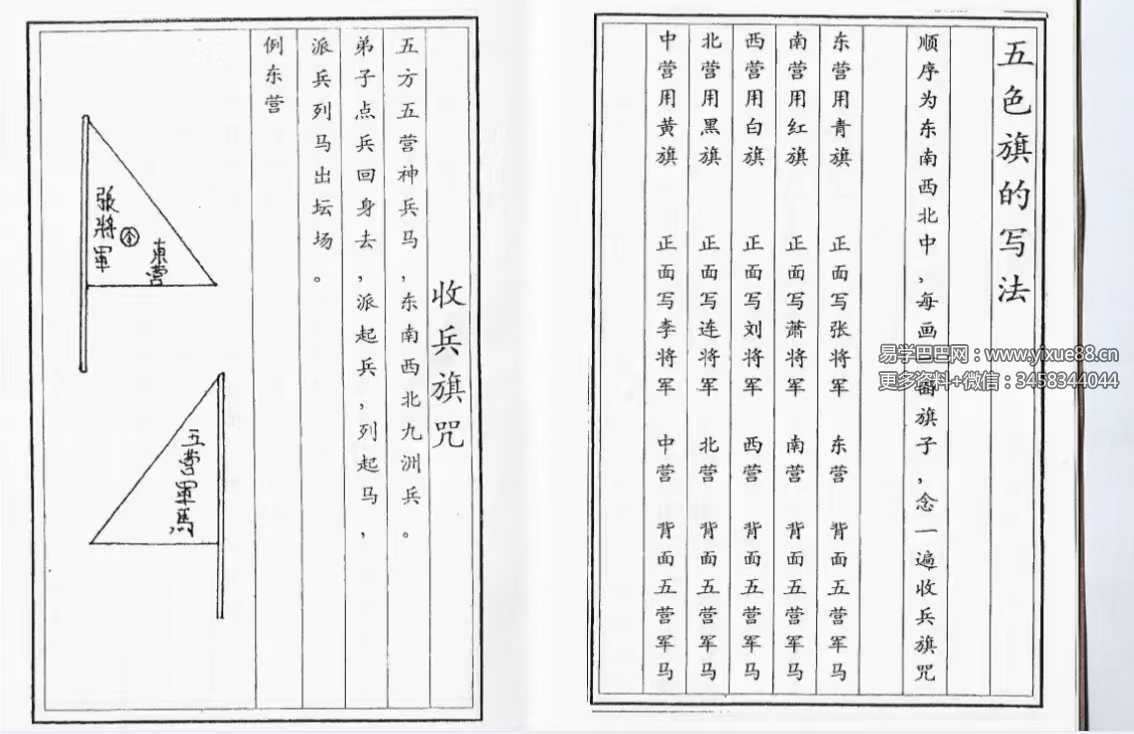 五色旗的写法
顺序为东南西北中，每画一面旗子，念一遍收兵旗咒
东营用青旗 正面写张将军 东营 背面五营军马
南营用红旗 正面写萧将军 南营 背面五营军马
西营用白旗 正面写刘将军 西营 背面五营军马
北营用黑旗 正面写连将军 北营 背面五营军马
中营用黄旗 正面写李将军 中营 背面五营军马
收兵旗咒
五方五营神兵马，东南西北九洲兵。
弟子点兵回身去，派起兵，列起马，
派兵列马出坛场。
例东营
東营
張將軍
五营軍馬
易学巴巴网：www.yixue88.cn
更多资料+微信：3458344044